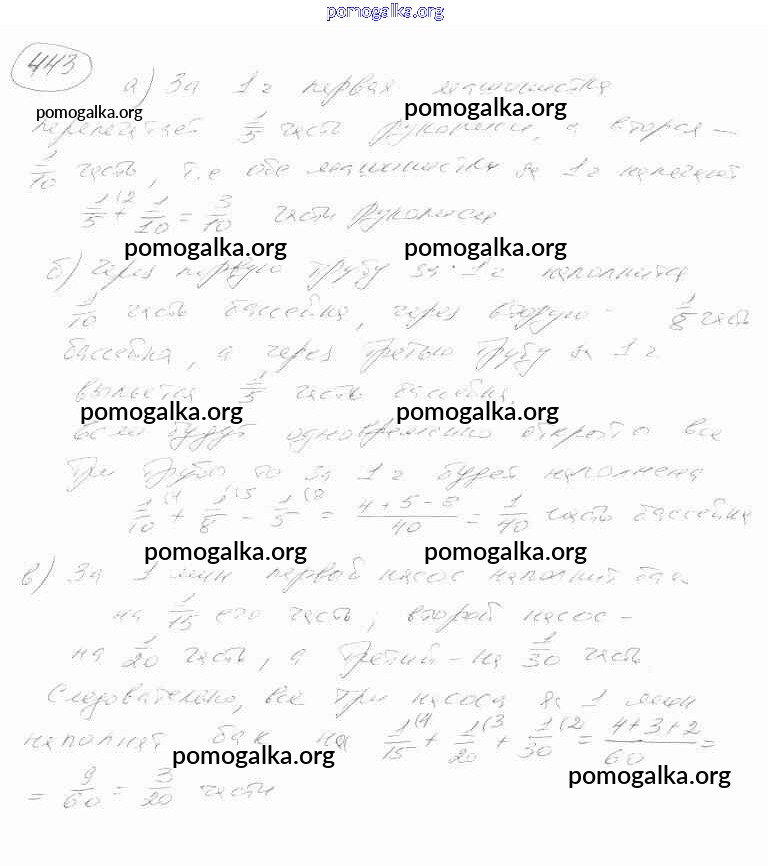 pomogalka.org
443
а) За 1 ч первая машинистка
pomogalka.org pomogalka.org
перепечатает 1/5 часть рукописи, а вторая —
1/10 часть, т.е обе машинистки за 1 ч напечатают
1/5 (2 + 1/10 = 3/10 части рукописи
pomogalka.org pomogalka.org
б) Через первую трубу за 1 ч наполнится
1/10 часть бассейна, через вторую - 1/8 часть
бассейна, а через третью трубу за 1 ч
выльется 1/5 часть бассейна.
pomogalka.org pomogalka.org
Если будут одновременно открыто все
три трубы то за 1 ч будет наполнена
1/10 (4 + 1/8 (5 - 1/5 (8 = 4+5-8/40 = 1/40 часть бассейна
pomogalka.org pomogalka.org
в) За 1 мин первый насос наполнит бак
на 1/15 его часть, второй насос -
на 1/20 часть, а третий - на 1/30 часть
Следовательно, все три насоса за 1 мин
наполнят бак на 1/15 (4 + 1/20 (3 + 1/30 (2 = 4+3+2/60 =
pomogalka.org pomogalka.org
= 9/60 = 3/20 части